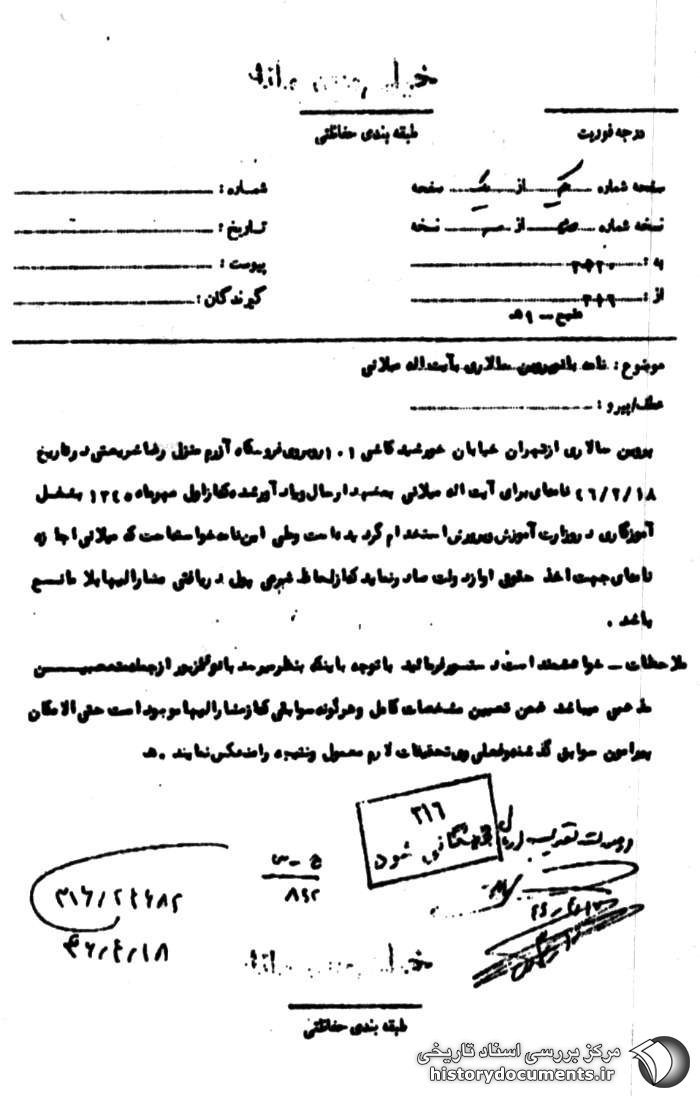 خیلی محرمانه
درجه فوریت
طبقه بندی حفاظتی
صفحه شماره یک از یک صفحه
شماره :
نسخه شماره از نسخه
تاریخ :
به : ۳۲۰
پیوست :
از : ۳۱۶
گیرندگان :
موضوع : نامه بانو پروین سالاری بآیت اله میلانی
عطف/پیرو :
پروین سالاری از تهران خیابان خورشید کاشی ۱۰۱ روبروی فروشگاه آزرم منزل رضا شریعتی در تاریخ
۴۶/۲/۱۸ نامه‌ای برای آیت اله میلانی بمشهد ارسال و یادآور شده که از اول مهرماه ۱۳۴۰ بشغل
آموزگاری در وزارت آموزش و پرورش استخدام گردیده است وطی این نامه خواسته است که میلانی اجازه
نامه‌ای جهت اخذ حقوق او از دولت صادر نماید که از لحاظ شرعی پول دریافتی مشارالیها بلا مانع
باشد .
ملاحظات ـ خواهشمند است دستور فرمائید با توجه باینکه بنظر میرسد بانوی مزبور از جمله متعصبین
مذهبی میباشد ضمن تعیین مشخصات کامل و هرگونه سوابقی که از مشارالیها موجود است حتی الامکان
پیرامون سوابق گذشته و فعلی وی تحقیقات لازم معمول و نتیجه را منعکس نمایند . ه
۳۱۶
بایگانی شود
ج ـ س
۸۴۲
۳۱۶/۲۴۶۸۲
۴۶/۴/۱۸
خیلی محرمانه
طبقه بندی حفاظتی
مرکز بررسی اسناد تاریخی
historydocuments.ir